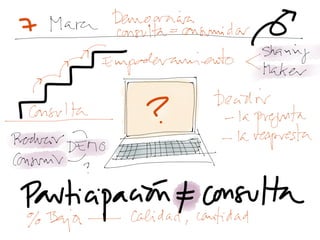 7 Mara
Democracia
consulta = consumidor
Empoderamiento
Sharing
Maker
Consulta
?
Decidir
- la pregunta
- la respuesta
Producir
Consumir
DEMO
?
Participación ≠ consulta
% Baja — Calidad, cantidad